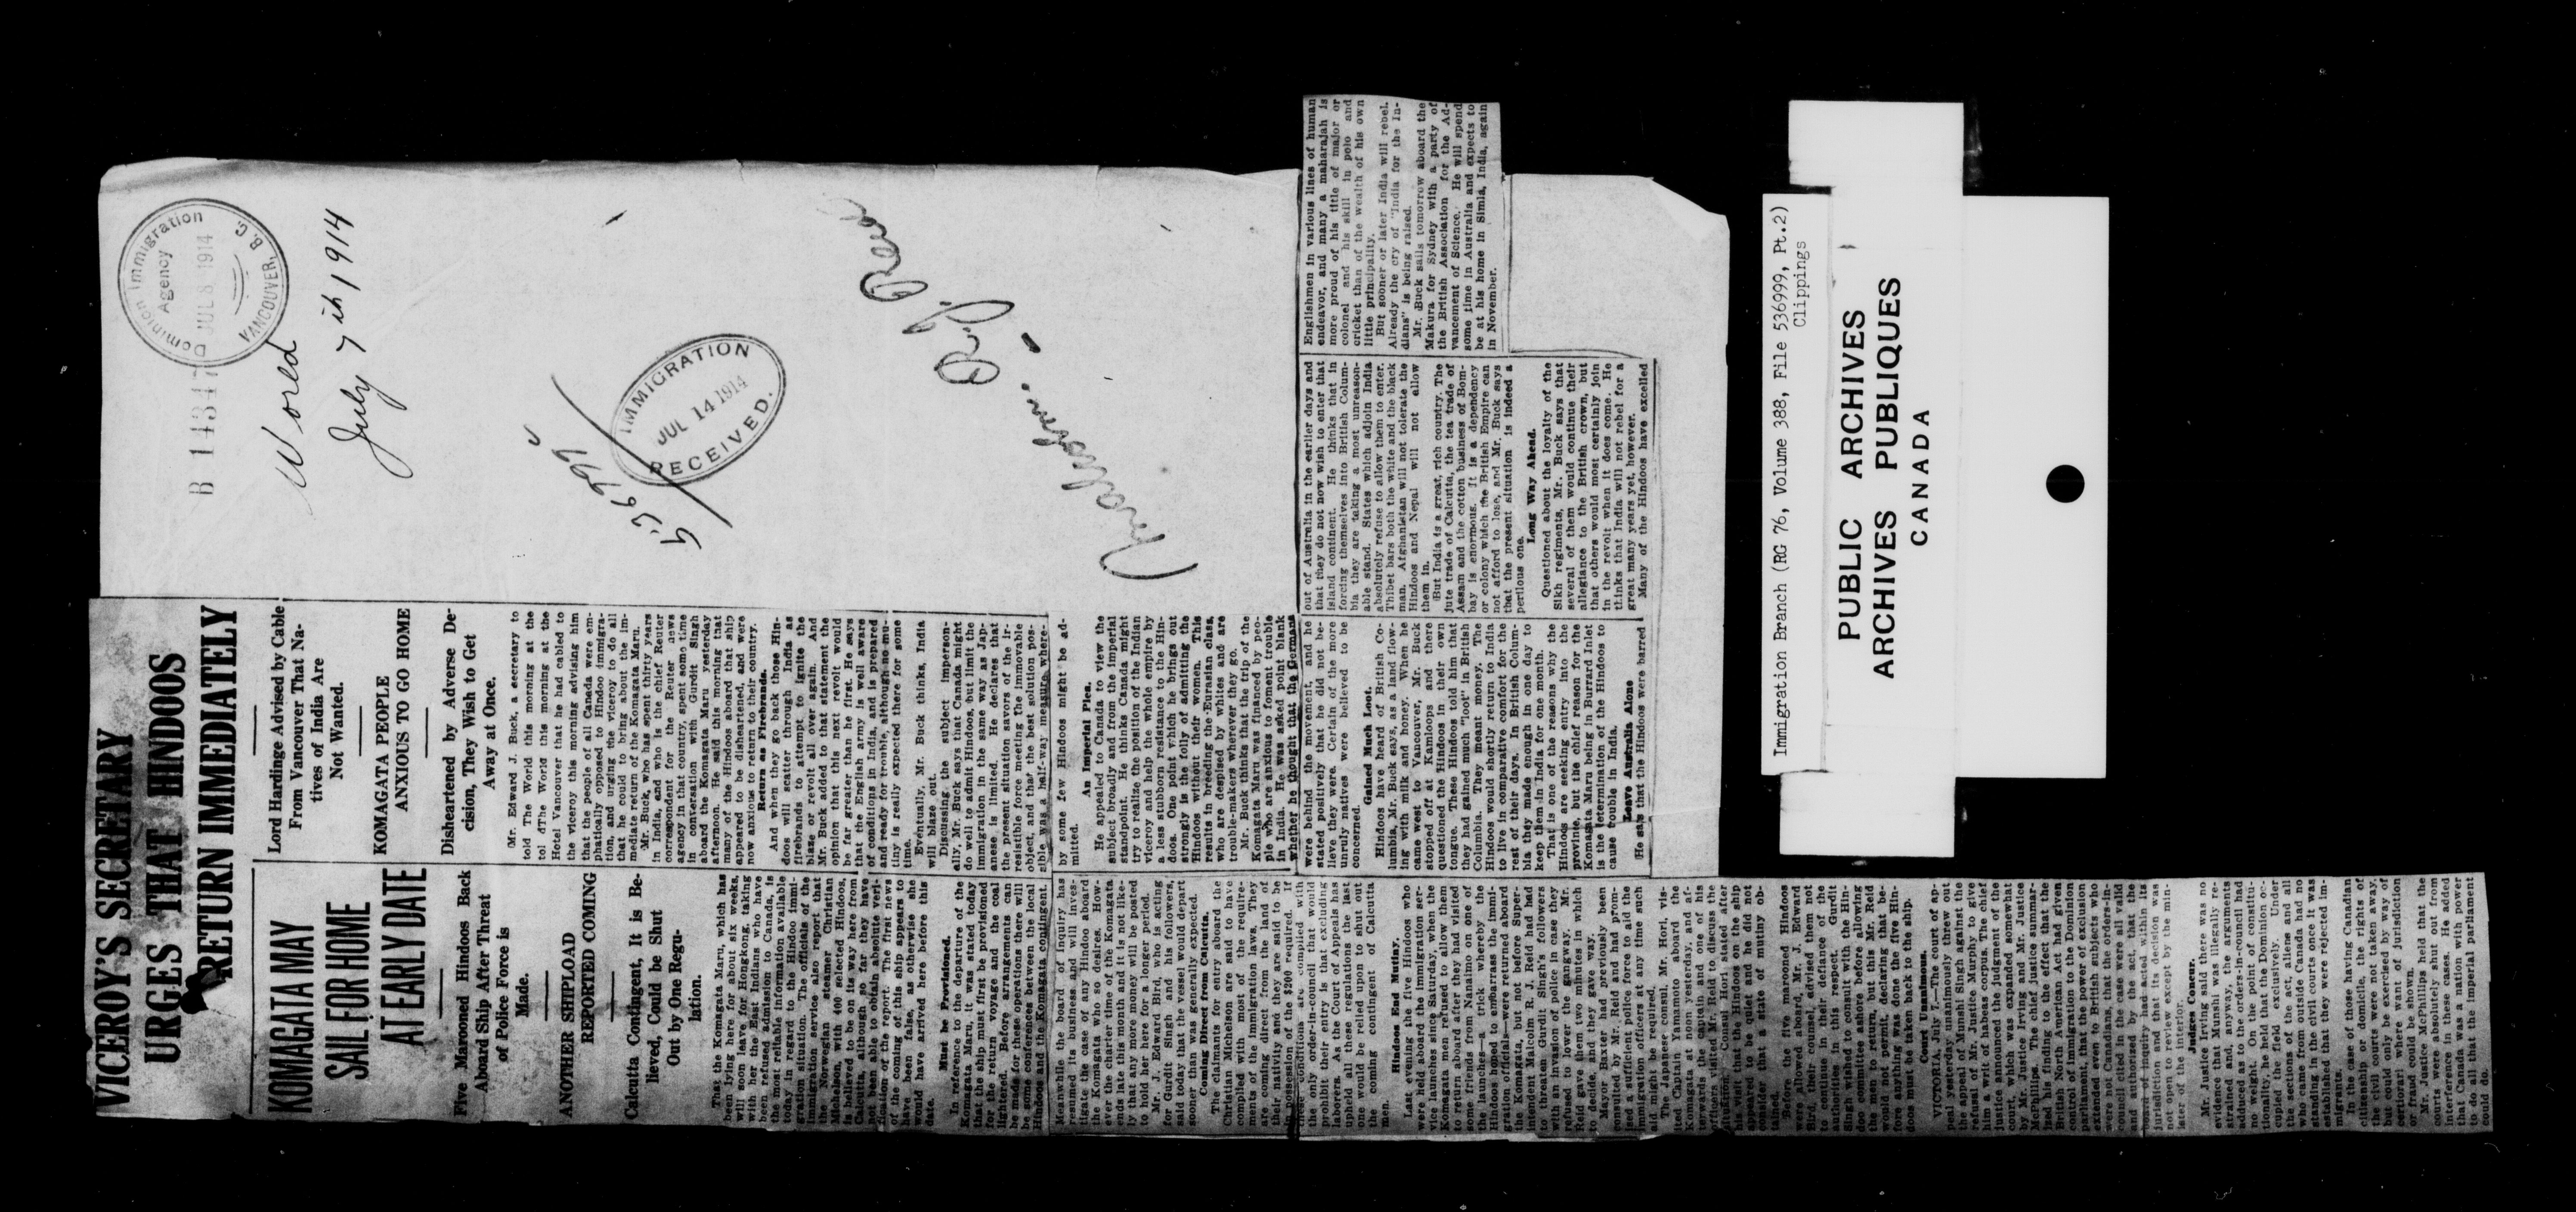 Dominion Immigration
Agency
JUL 8 1914
VANCOUVER, B.C.
World
July 7th 1914
536999
IMMIGRATION
JUL 14 1914
RECEIVED.
VICEROY'S SECRETARY
URGES THAT HINDOOS
RETURN IMMEDIATELY
KOMAGATA MAY
SAIL FOR HOME
AT EARLY DATE
Five Marooned Hindoos Back
Aboard Ship After Threat
of Police Force is
Made.
ANOTHER SHIPLOAD
REPORTED COMING
Calcutta Contingent, It is Be-
lieved, Could be Shut
Out by One Regu-
lation.
That the Komagata Maru, which has
been lying here for about six weeks,
will soon leave for Hongkong, taking
with her the East Indians who have
been refused admission to Canada, is
the most reliable information available
today in regard to the Hindoo immi-
gration situation. The officials of the
immigration service also report that
the Norwegian steamer Christian
Michelson, with 400 selected Hindoos,
is believed to be on its way here from
Calcutta, although so far they have
not been able to obtain absolute veri-
fication of the report. The first news
of the coming of this ship appears to
have been false, as otherwise she
would have arrived here before this
date.
Must be Provisioned.
In reference to the departure of the
Komagata Maru, it was stated today
that the ship must first be provisioned
for the return voyage and the coal
lightered. Before arrangements can
be made for these operations there will
be some conferences between the local
Hindoos and the Komagata contingent.
Meanwhile the board of inquiry has
resumed its business and will inves-
tigate the case of any Hindoo aboard
the Komagata who so desires. How-
ever the charter time of the Komagata
ends late this month and it is not like-
ly that any more money will be posted
to hold her here for a longer period.
Mr. J. Edward Bird, who is acting
for Gurdit Singh and his followers,
said today that the vessel would depart
sooner than was generally expected.
Coming Direct From Calcutta.
The claimants for entry aboard the
Christian Michelson are said to have
complied with most of the require-
ments of the immigration laws. They
are coming direct from the land of
their nativity and they are said to be
in possession of the $200 required. If
these conditions are complied with
the only order-in-council that would
prohibit their entry is that excluding
laborers. As the Court of Appeals has
upheld all these regulations the last
one would be relied upon to shut out
the coming contingent of Calcutta
men.
Hindoos End Mutiny.
Last evening the five Hindoos who
were held aboard the immigration ser-
vice launches since Saturday, when the
Komagata men refused to allow them
to return after they had visited
some friends from Nanaimo on one of
the launches—a trick whereby the
Hindoos hoped to embarrass the immi-
gration officials—were returned aboard
the Komagata, but not before Super-
intendent Malcolm R. J. Reid had had
to threaten Gurdit Singh's followers
with an invasion of police in case they
refused to lower the gangway. Mr.
Reid gave them two minutes in which
to decide, and they gave way.
Mayor Baxter had previously been
consulted by Mr. Reid and had prom-
ised a sufficient police force to aid the
immigration officers at any time such
aid might be required.
The Japanese consul, Mr. Hori, vis-
ited Captain Yamamoto aboard the
Komagata at noon yesterday, and af-
terwards the captain and one of his
officers visited Mr. Reid to discuss the
situation. Consul Hori stated after
his visit that conditions on the ship
appeared to be quiet and he did not
consider that a state of mutiny ob-
tained.
Before the five marooned Hindoos
were allowed aboard, Mr. J. Edward
Bird, their counsel, advised them not
to continue in their defiance of the
authorities in this respect. Gurdit
Singh wished to consult with the Hin-
doo committee ashore before allowing
the men to return, but this Mr. Reid
would not permit, declaring that be-
fore anything was done the five Hin-
doos must be taken back to the ship.
Court Unanimous.
VICTORIA, July 7.—The court of ap-
peal yesterday unanimously threw out
the appeal of Munshi Singh against the
refusal of Mr. Justice Murphy to give
him a writ of habeas corpus. The chief
justice announced the judgment of the
court, which was expanded somewhat
by Mr. Justice Irving and Mr. Justice
McPhillips. The chief justice summar-
ised his finding to the effect that the
British North American Act had given
control of immigration to the Dominion
parliament, that the power of exclusion
extended even to British subjects who
were not Canadians, that the orders-in-
council cited in the case were all valid
and authorised by the act, that the
board of inquiry had acted within its
jurisdiction and that its decision was
not open to review except by the min-
ister of the interior.
Judges Concur.
Mr. Justice Irving said there was no
evidence that Munshi was illegally re-
strained, and, anyway, the arguments
adduced as to the orders-in-council had
no weight. On the point of constitu-
tionality, he held the Dominion oc-
cupied the field exclusively. Under
the sections of the act, aliens and all
who came from outside Canada had no
standing in the civil courts once it was
established that they were rejected im-
migrants.
In the case of those having Canadian
citizenship or domicile, the rights of
the civil courts were not taken away,
but could only be exercised by way of
certiorari where want of jurisdiction
or fraud could be shown.
Mr. Justice McPhillips held that the
courts were absolutely shut out from
interference in these cases. He added
that Canada was a nation with power
to do all that the imperial parliament
could do.
Lord Harding Advised by Cable
From Vancouver That Na-
tives of India Are
Not Wanted.
KOMAGATA PEOPLE
ANXIOUS TO GO HOME
Disheartened by Adverse De-
cision, They Wish to Get
Away at Once.
Mr. Edward J. Buck, a secretary to
told The World this morning at the
tol dThe World this morning at the
Hotel Vancouver that he had cabled to
the viceroy this morning advising him
that the people of all Canada were em-
phatically opposed to Hindoo immigra-
tion, and urging the viceroy to do all
that he could to bring about the im-
mediate return of the Komagata Maru.
Mr. Buck, who has spent thirty years
in India, and who is the chief Reuter
correspondent for the Reuter news
agency in that country, spent some time
in conversation with Gurdit Singh
aboard the Komagata Maru yesterday
afternoon. He said this morning that
many of the Hindoos aboard that ship
appeared to be disheartened, and were
now anxious to return to their country.
Return as Firebrands.
And when they go back those Hin-
doos will scatter through India as
firebrands to attempt to ignite the
blaze or revolt all over again. And
Mr. Buck added to that statement the
opinion that this next revolt would
be far greater than he first. He says
that the English army is well aware
of conditions in India, and is prepared
and ready for trouble, although no mu-
tiny is really expected there for some
time.
Eventually, Mr. Buck thinks, India
will blaze out.
Discussing the subject imperson-
ally, Mr. Buck says that Canada might
do well to admit Hindoos, but limit the
immigration in the same way as Jap-
anese is limited. He declares that
the present situation savors of the ir-
resistible force meeting the immovable
object, and that the best solution pos-
sible was a half-way measure where-
by some few Hindoos might be ad-
mitted.
An Imperial Plea.
He appealed to Canada to view the
subject broadly and from the imperial
standpoint. He thinks Canada might
try to realize the position of the Indian
viceroy and help the whole empire by
a less stubborn resistance to the Hin-
doos. One point which he brings out
strongly is the folly of admitting the
Hindoos without their women. This
results in breeding the Eurasian class,
who are despised by whites and are
trouble-makers wherever they go.
Mr. Buck thinks that the trip of the
Komagata Maru was financed by peo-
ple who are anxious to foment trouble
in India. He was asked point blank
whether he thought that the Germans
were behind the movement, and he
stated positively that he did not be-
lieve they were. Certain of the more
unruly natives were believed to be
concerned.
Gained Much Loot.
Hindoos have heard of British Co-
lumbia, Mr. Buck says, as a land flow-
ing with milk and honey. When he
came west to Vancouver, Mr. Buck
stopped off at Kamloops and there
questioned the Hindoos in their own
tongue. These Hindoos told him that
they had gained much "loot" in British
Columbia. They meant money. The
Hindoos would shortly return to India
to live in comparative comfort for the
rest of their days. In British Colum-
bia they made enough in one day to
keep them in India for one month.
That is one of the reasons why the
Hindoos are seeking entry into the
province, but the chief reason for the
Komagata Maru being in Burrard Inlet
is the determination of the Hindoos to
cause trouble in India.
Leave Australia Alone
He says that the Hindoos were barred
out of Australia in the earlier days and
that they do not now wish to enter that
island continent. He thinks that in
forcing themselves into British Colum-
bia they are taking a most unreason-
able stand. States which adjoin India
absolutely refuse to allow them to enter.
Thibet bars both the white and the black
man. Afghanistan will not tolerate the
Hindoos and Nepal will not allow
them in.
But India is a great, rich country. The
jute trade of Calcutta, the tea trade of
Assam and the cotton business of Bom-
bay is enormous. It is a dependency
or colony which the British Empire can
not afford to lose, and Mr. Buck says
that the present situation is indeed a
perilous one.
Long Way Ahead.
Questioned about the loyalty of the
Sikh regiments, Mr. Buck says that
several of them would continue their
allegiance to the British crown, but
that others would most certainly join
in the revolt when it does come. He
thinks that India will not rebel for a
great many years yet, however.
Many of the Hindoos have excelled
Englishmen in various lines of human
endeavor, and many a maharajah is
more proud of his title of major or
colonel and his skill in polo and
cricket than of the wealth of his own
little principality.
But sooner or later India will rebel.
Already the cry of "India for the In-
dians" is being raised.
Mr. Buck sails tomorrow aboard the
Makura for Sydney with a party of
the British Association for the Ad-
vancement of Science. He will spend
some time in Australia and expects to
be at his home in Simla, India, again
in November.
Immigration Branch (RG 76, Volume 388, File 536999, Pt.2)
Clippings
PUBLIC ARCHIVES
ARCHIVES PUBLIQUES
CANADA